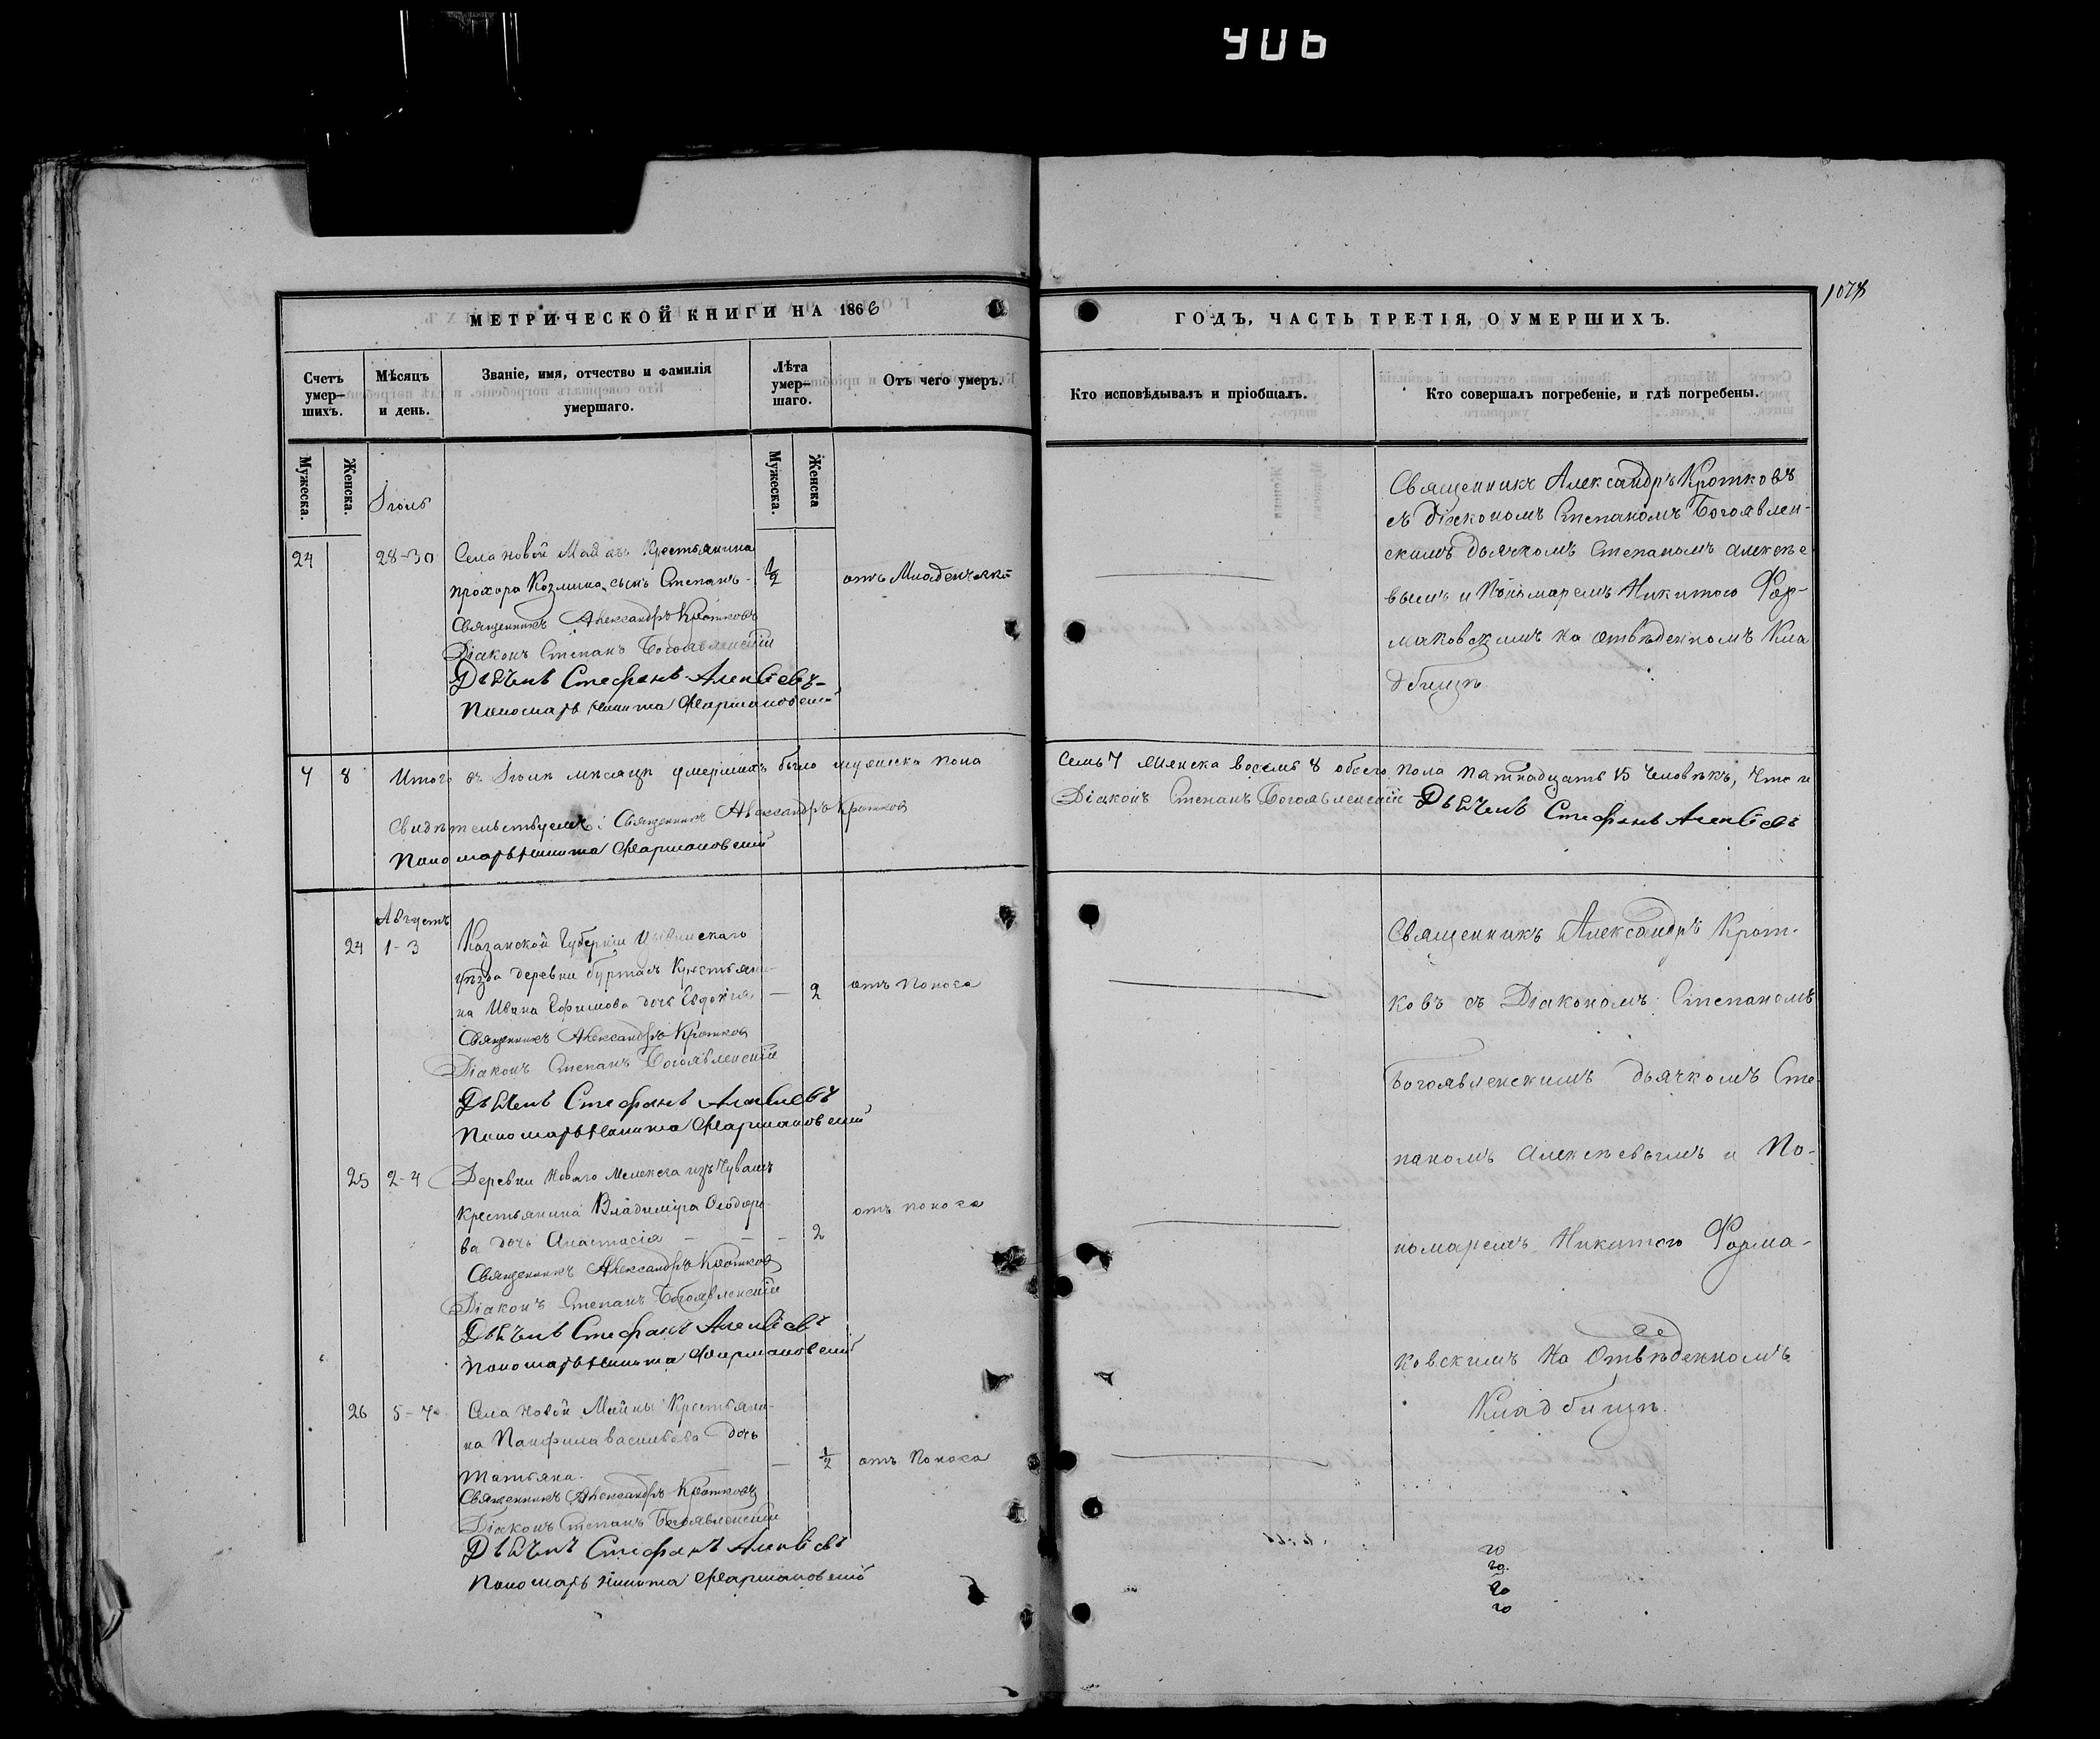 906
1078
МЕТРИЧЕСКОЙ КНИГИ НА 1866
ГОДЪ, ЧАСТЬ ТРЕТІЯ, О УМЕРШИХЪ.
Счетъ умер-
шихъ.
Мѣсяцъ
и день.
Званіе, имя, отчество и фамилія
умершаго.
Лѣта
умер-
шаго.
Отъ чего умеръ.
Кто исповѣдывалъ и пріобщалъ.
Кто совершалъ погребеніе, и гдѣ погребены.
Мужеска.
Женска.
Мужеска.
Женска
Іюль
24
28-30
Села новой Майны Крестьянина
прохора Козмина сынъ Степанъ -
1/2
отъ Младенческой
Священникъ Александръ Кротковъ
Діаконъ Степанъ Богоявленскій
Дьячекъ Стефанъ Алексіевъ
Пономарь Никита Фармаковскій
Священникъ Александръ Кротковъ
съ діакономъ Степаномъ Богоявлен-
скимъ дьячкомъ Степаномъ алексѣе
вымъ и Пономаремъ Никитою Фар-
маковскимъ на отвѣденномъ Кла
дбищѣ
7 8
Итого въ Іюлѣ мѣсяцѣ умершихъ было мужеска пола
семь 7 женска восемь 8 обоего пола пятнадцать 15 человѣкъ, что и
свидѣтельствуемъ: Священникъ Александръ Кротковъ
Діаконъ Степанъ Богоявленскій Дьячекъ Стефанъ Алексіевъ
Пономарь Никита Фармаковскій
Августъ
24
1-3
Казанской Губерніи Цывильскаго
уѣзда деревни буртасъ Крестьяни-
на Ивана Ефимова дочь Евдокія
— 2
отъ поноса
Священникъ Александръ Кротковъ
Діаконъ Степанъ Богоявленскій
Дьячекъ Стефанъ Алексіевъ
Пономарь Никита Фармаковскій
25
2-4
Деревни Новаго Мелекеса изъ Чувашъ
крестьянина Владиміра Ѳеодоро-
ва дочь Анастасія — — —
2
отъ поноса
Священникъ Александръ Кротковъ
Діаконъ Степанъ Богоявленскій
Дьячекъ Стефанъ Алексіевъ
Пономарь Никита Фармаковскій
26
5-7
Села Новой Майны Крестьяни-
на Панфила васильева дочь
татьяна.
— 1/2
отъ Поноса
Священникъ Александръ Кротковъ
Діаконъ Степанъ Богоявленскій
Дьячекъ Стефанъ Алексіевъ
Пономарь Никита Фармаковскій
Священникъ Александръ Крот-
ковъ съ Діакономъ Степаномъ
Богоявленскимъ дьячкомъ Сте-
паномъ алексѣевымъ и По-
номаремъ Никитою Фарма-
ковскимъ На Отвѣденномъ
Кладбищѣ.
20
20
20
20